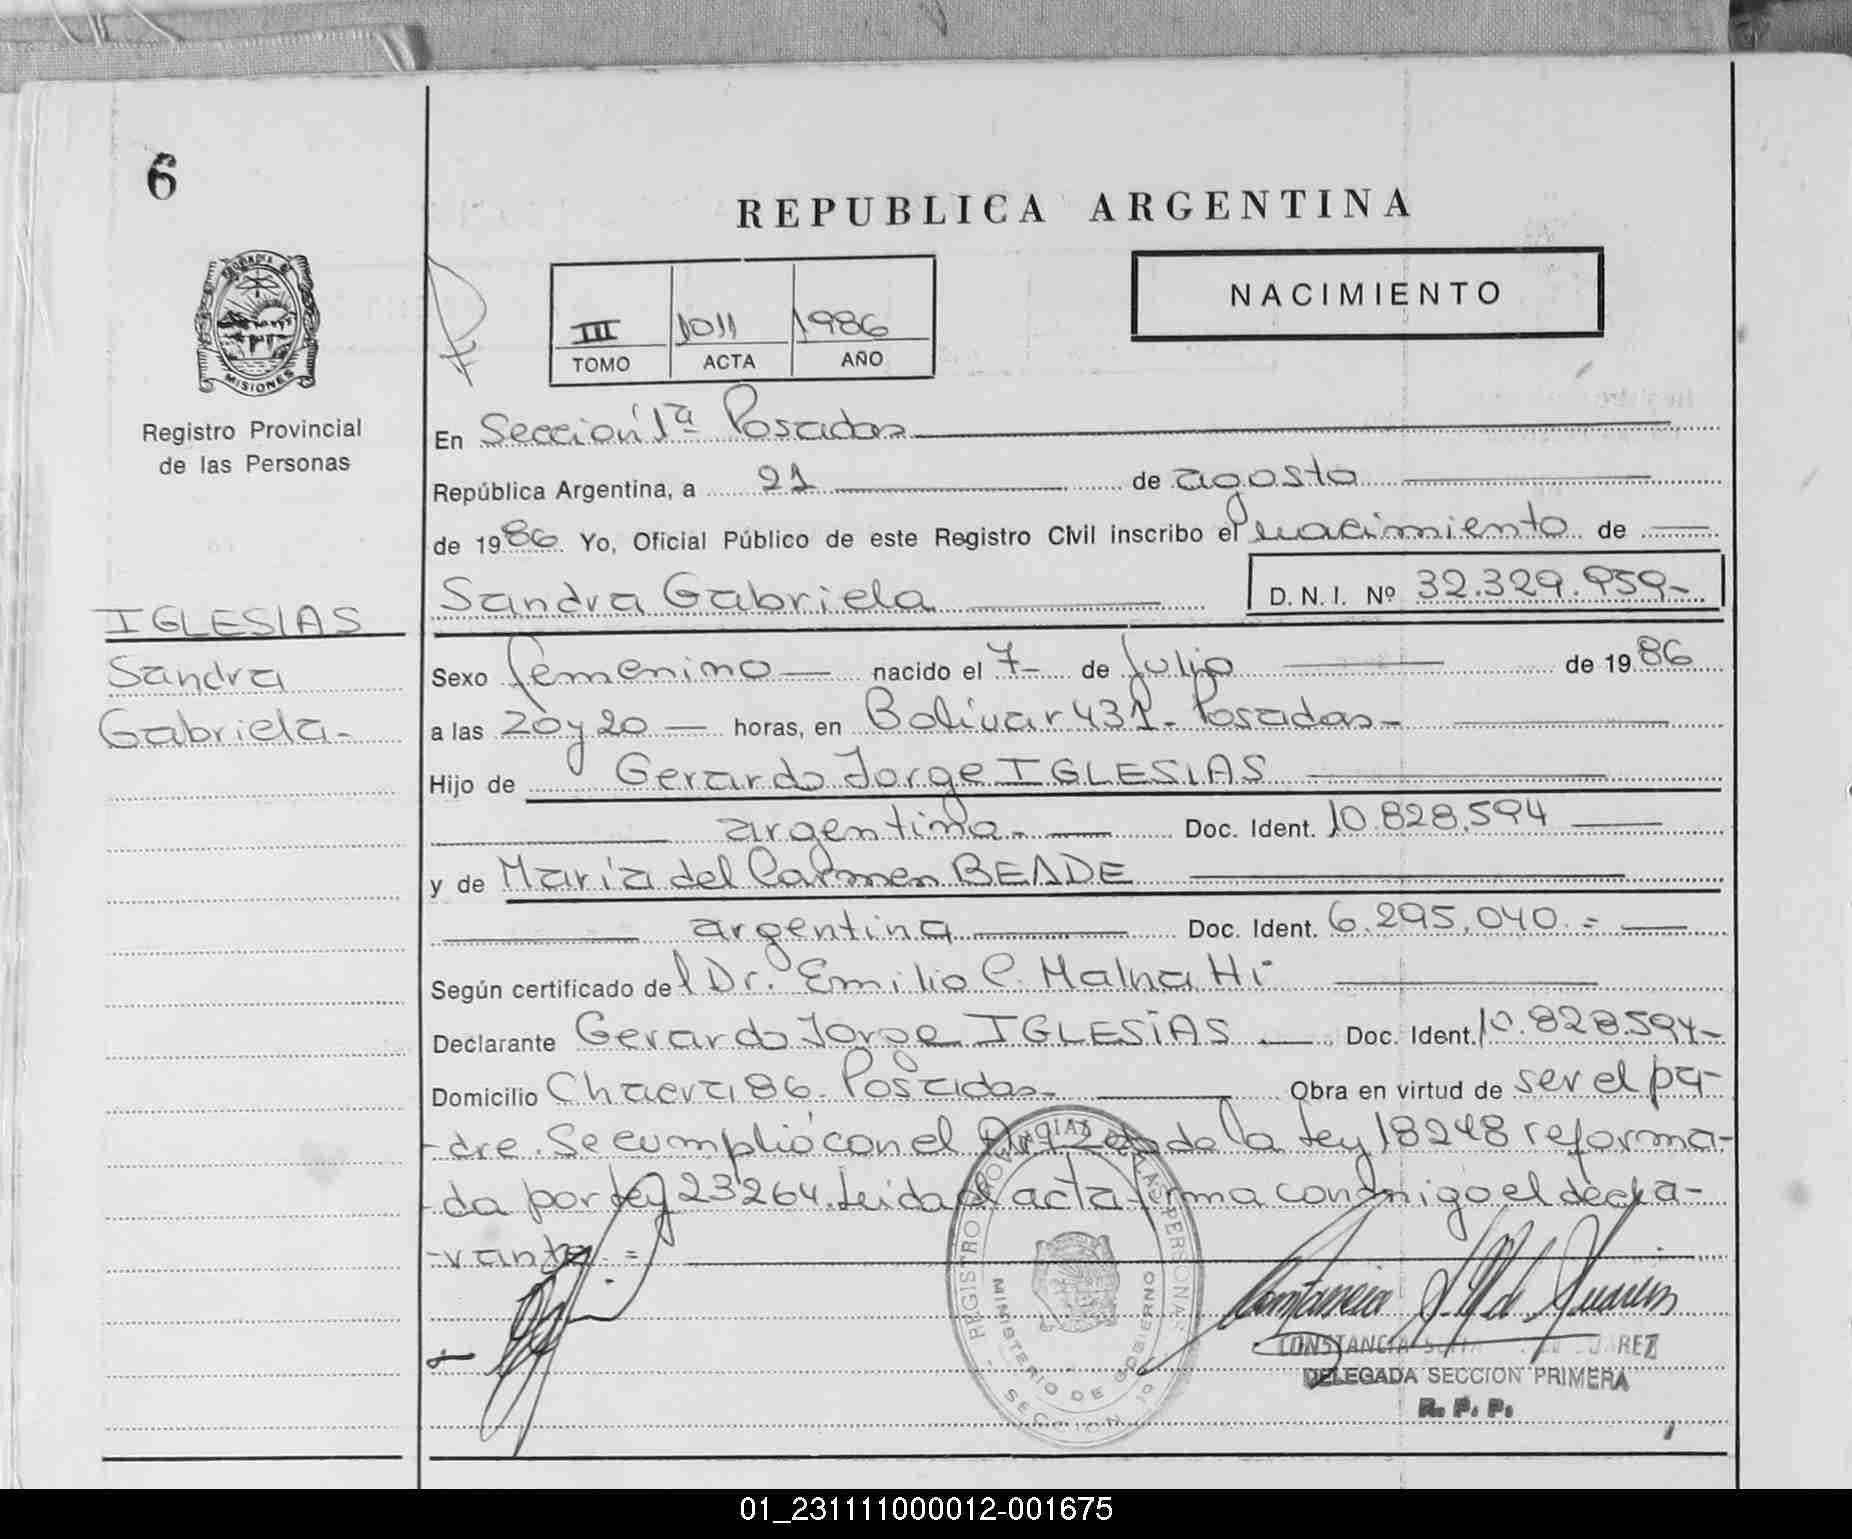 6
REPUBLICA ARGENTINA
NACIMIENTO
III 1011 1986
TOMO ACTA AÑO
MISIONES
Registro Provincial
de las Personas
En Sección 1ª Posadas
República Argentina, a 21 de agosto
de 1986 Yo, Oficial Público de este Registro Civil inscribo el nacimiento de
Sandra Gabriela D. N. I. Nº 32.329.959-
IGLESIAS
Sandra
Gabriela-
Sexo femenino nacido el 7- de Julio de 1986
a las 20 y 20 horas, en Bolívar 431- Posadas-
Hijo de Gerardo Jorge IGLESIAS
argentino- Doc. Ident. 10.828.594
y de María del Carmen BEADE
argentina Doc. Ident. 6.295.040.=
Según certificado del Dr. Emilio C. Malnatti
Declarante Gerardo Jorge IGLESIAS Doc. Ident. 10.828.594-
Domicilio Chacra 86- Posadas- Obra en virtud de ser el pa-
-dre. Se cumplió con el Art 2do de la Ley 18248 reforma-
-da por Ley 23264. Leida el acta firma conmigo el decla-
-rante.=
REGISTRO PROVINCIAL DE LAS PERSONAS
MINISTERIO DE GOBIERNO
SECCION 1º
CONSTANCIA JUAREZ
DELEGADA SECCION PRIMERA
R. P. P.
01_231111000012-001675